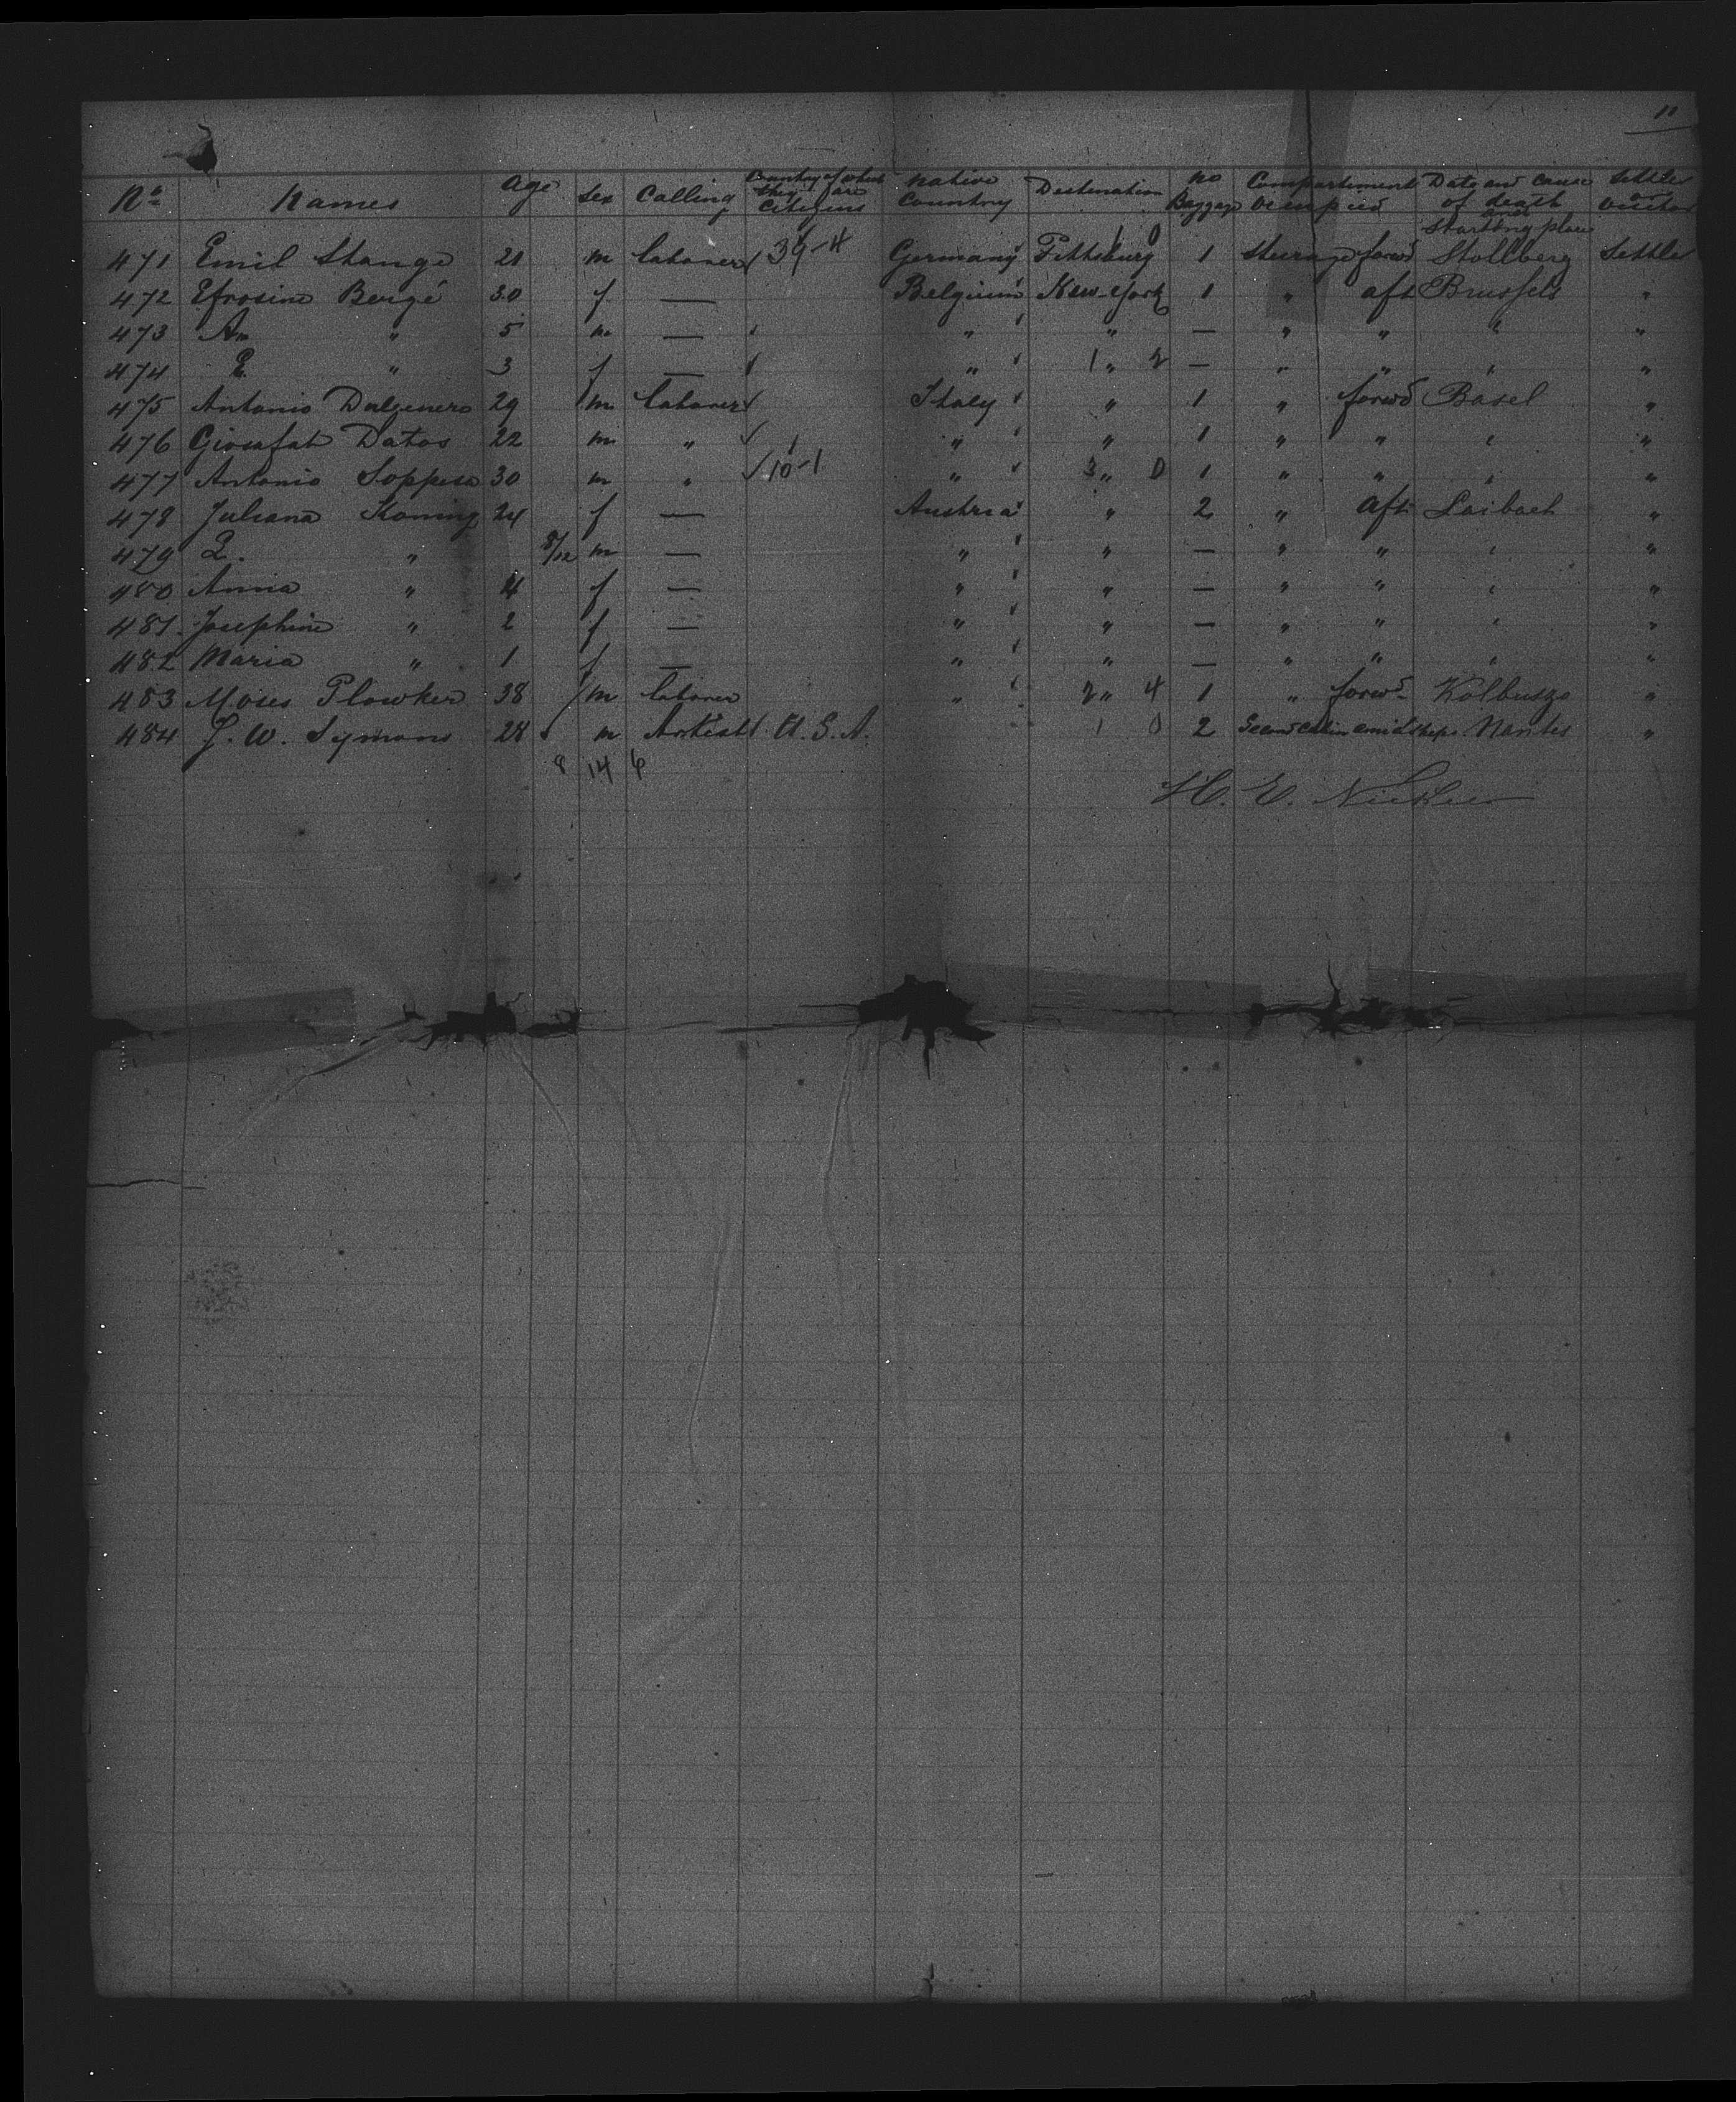 11
No Names Age Sex Calling Country of which they are citizens Native Country Destination No Baggage Compartement occupied Date and cause of death and Starting place Settler or Visitor
471 Emil Stange 21 m laborer 39-4 Germany Pittsburg 1 0 1 Steerage forwd Stollberg Settler
472 Efrosine Bergé 30 f — Belgium New-York 1 " aft Brussels "
473 An " 5 m — " " — " " " "
474 E. " 3 f — " 1 " 2 — " " " "
475 Antonio Dalgenero 29 m laborer Italy " 1 " forwd Basel "
476 Giosafat Datos 22 m " " " 1 " " " "
477 Antonio Soppesa 30 m " 10-1 " 3 " 0 1 " " " "
478 Juliana Koning 24 f — Austria " 2 " aft Laibach "
479 " 8/12 m — " " — " " " "
480 Anna " 4 f — " " — " " " "
481 Josephine " 2 f — " " — " " " "
482 Maria " 1 f — " " — " " " "
483 Moses Plowker 38 m laborer " 2 " 4 1 " forwd Kolbuszo "
484 J. W. Symons 28 m Artist U.S.A. 1 0 2 Second Cabin amidships Nantes "
8 14 6
H. E.